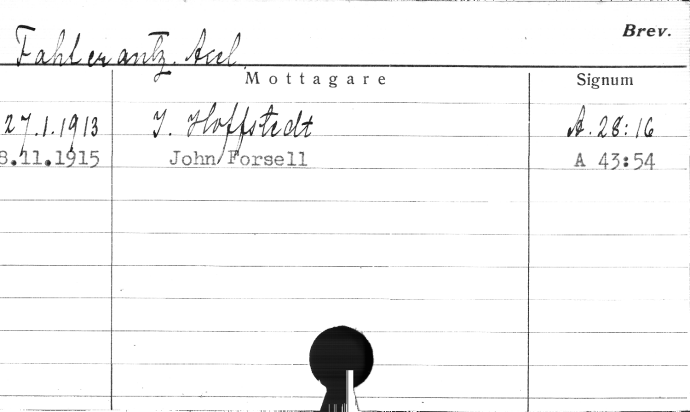 Brev.
Fahlcrantz. Axel
Mottagare Signum
27.1.1913 J. Hoffstedt A. 28:16
8.11.1915 John Forsell A 43:54